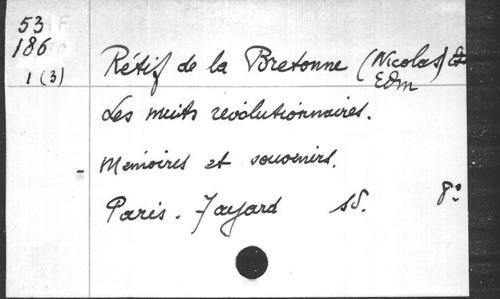 53
186
1 (3)
Rétif de la Bretonne (Nicolas)
Edm
Les nuits revolutionnaires.
- Memoires et souvenirs.
Paris - Fayard sd. 8º